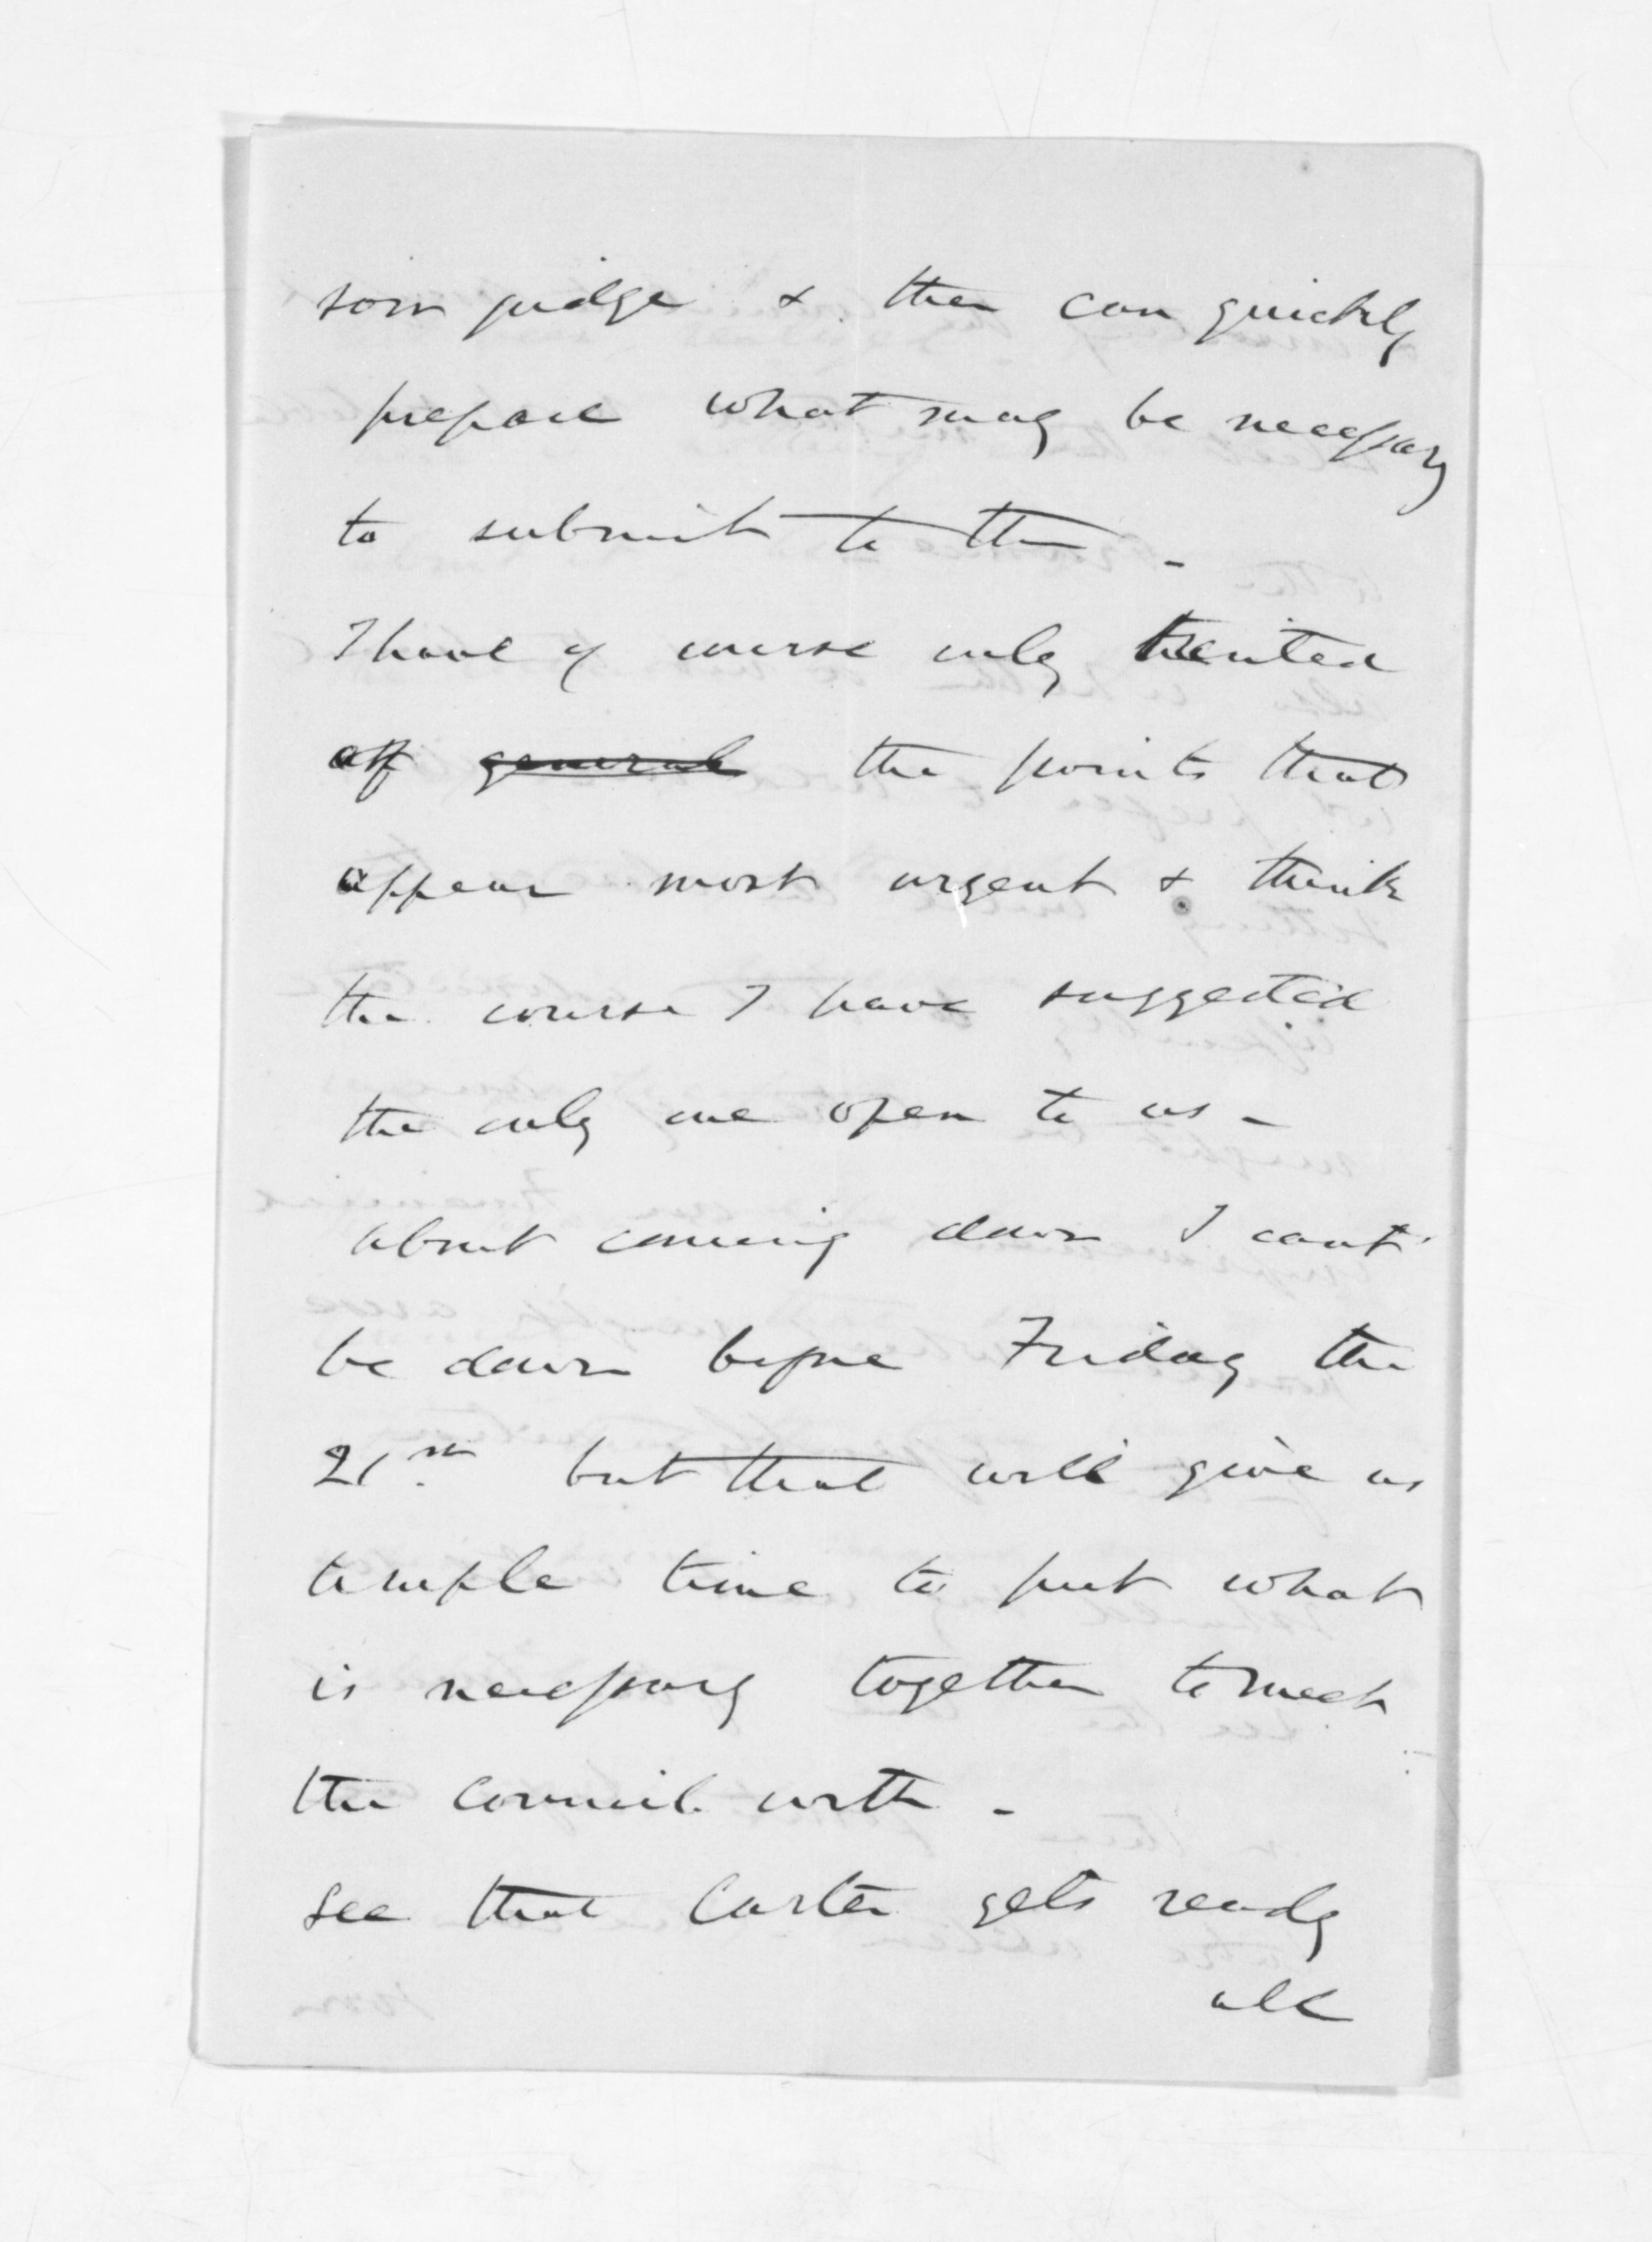 soon judge & then can quickly
prepare what may be necessary
to submit to them -
I have of course only treated
of general the points that
appear most urgent & think
the course I have suggested
the only one open to us -
about coming down I cant
be down before Friday the
21st but that will give us
ample time to put what
is necessary together to meet
the Council with -
see that Carter gets ready
all